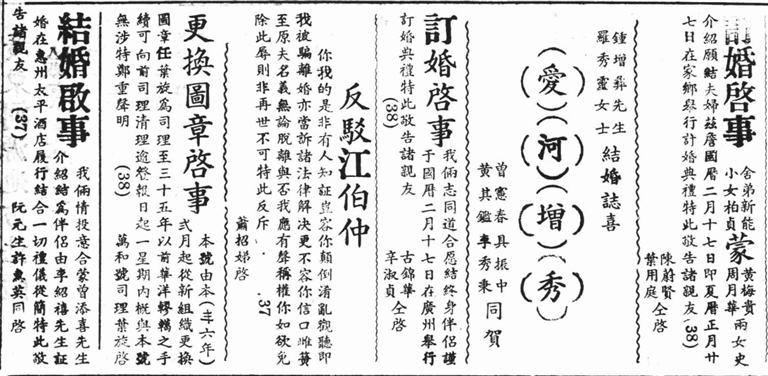 訂婚啓事
舍弟新能
小女柏貞
蒙
黃梅貴
周月華
兩女史
介紹願結夫婦茲詹國曆二月十七日即夏曆正月廿
七日在家鄉舉行訂婚典禮特此敬告諸親友(38)
陳蔚賢
葉用庭
仝啓
鍾增彝先生
羅秀靈女士
結婚誌喜
(愛)(河)(增)(秀)
曾憲春 具振中
黃其鑑 李秀秉
同賀
訂婚啓事
我倆志同道合愿結終身伴侶謹
于國曆二月十七日在廣州舉行
訂婚典禮特此敬告諸親友
(38)
古錦華
辛淑貞
仝啓
反駁江伯仲
你我的是非有人知証豈容你顛倒淆亂觀聽即
我被騙離婚亦當訴諸法律解決更不容你信口雌簧
至原夫名義無論脫離與否我應有聲稱權你如欲免
除此辱則非再世不可特此反斥
37
蕭招娣啓
更換圖章啓事
本號由本(卅六年)
弍月起從新組織更換
圖章任葉旋為司理至三十五年以前華洋轇轕之手
續可向前司理清理逾登報日起一星期內概與本號
無涉特鄭重聲明
(38)
萬和號司理葉旋啓
結婚啟事
我倆情投意合蒙曾添喜先生
介紹結為伴侶由李紹禧先生証
婚在惠州太平酒店履行結合一切禮儀從簡特此敬
告諸親友
(37)
阮元生許魚英同啓